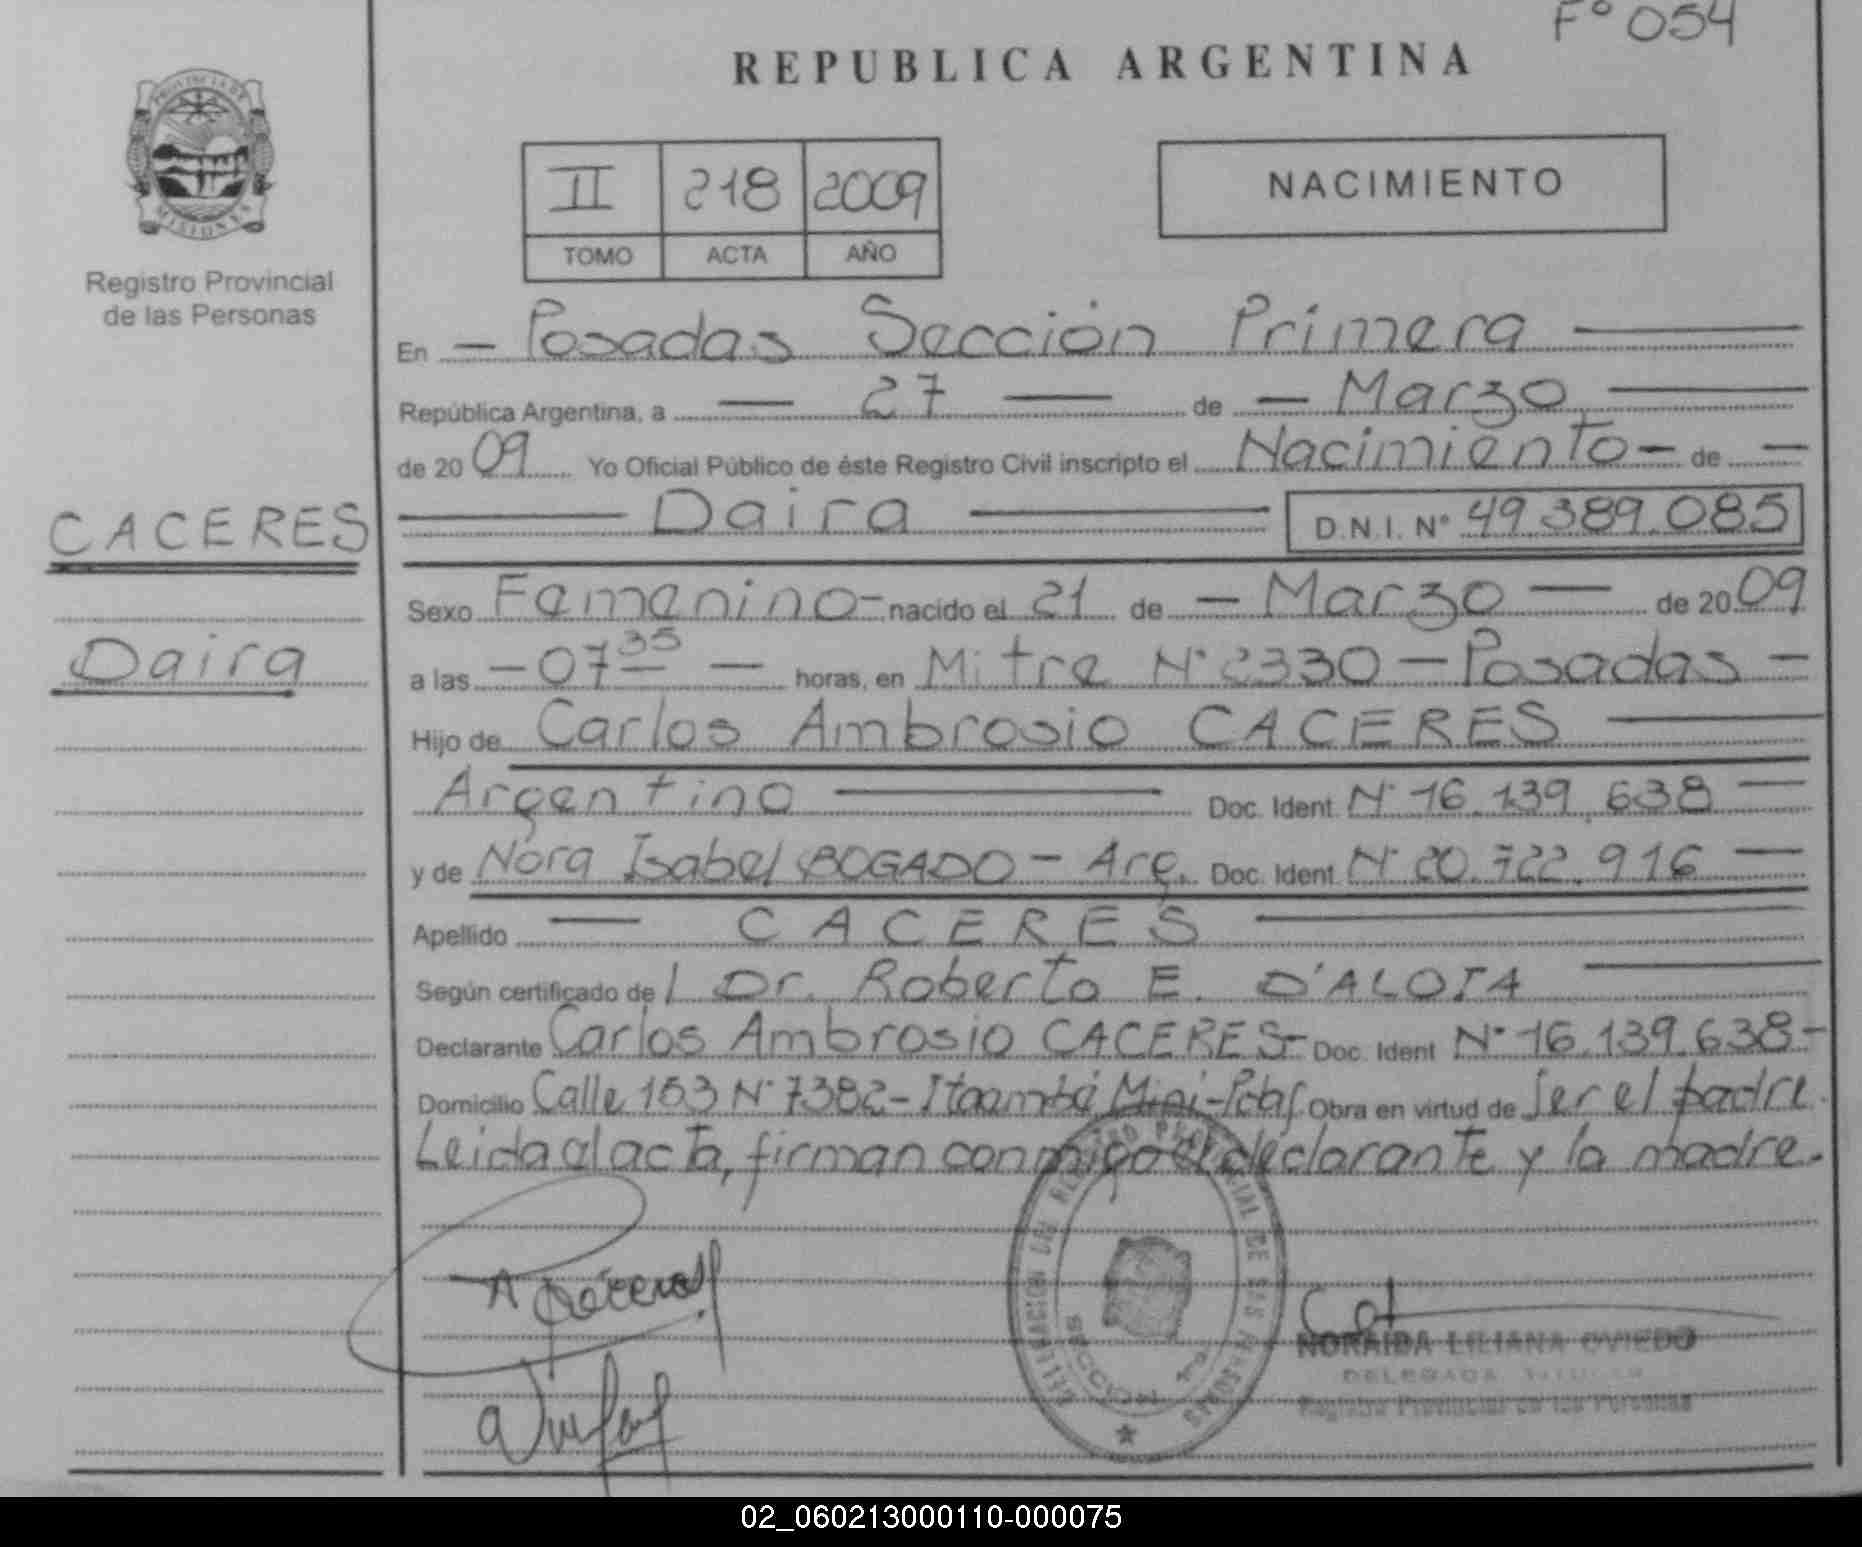 F° 054
REPUBLICA ARGENTINA
PROVINCIA DE
MISIONES
Registro Provincial
de las Personas
II 218 2009
TOMO ACTA AÑO
NACIMIENTO
En — Posadas Sección Primera —
República Argentina, a — 27 — de — Marzo —
de 20 09 Yo Oficial Público de éste Registro Civil inscripto el Nacimiento — de —
— Daira — D.N.I. N° 49.389.085
CACERES
Daira
Sexo Femenino - nacido el 21 de — Marzo — de 20 09
a las — 07 35 — horas, en Mitre N° 2330 — Posadas —
Hijo de Carlos Ambrosio CACERES —
Argentino — Doc. Ident. N° 16.139.638 —
y de Nora Isabel BOGADO — Arg. Doc. Ident. N° 20.722.916 —
Apellido — CACERES —
Según certificado de l Dr. Roberto E. D'ALOIA —
Declarante Carlos Ambrosio CACERES - Doc. Ident N° 16.139.638 -
Domicilio Calle 153 N° 7382 - Itaambé Mini - Pdas. Obra en virtud de ser el padre.
Leida al acta, firman conmigo el declarante y la madre.
A Cáceres
DELEGACION DEL REGISTRO PROVINCIAL DE LAS PERSONAS
SECCION
NORAIDA LILIANA OVIEDO
DELEGADA TITULAR
Registro Provincial de las Personas
02_060213000110-000075